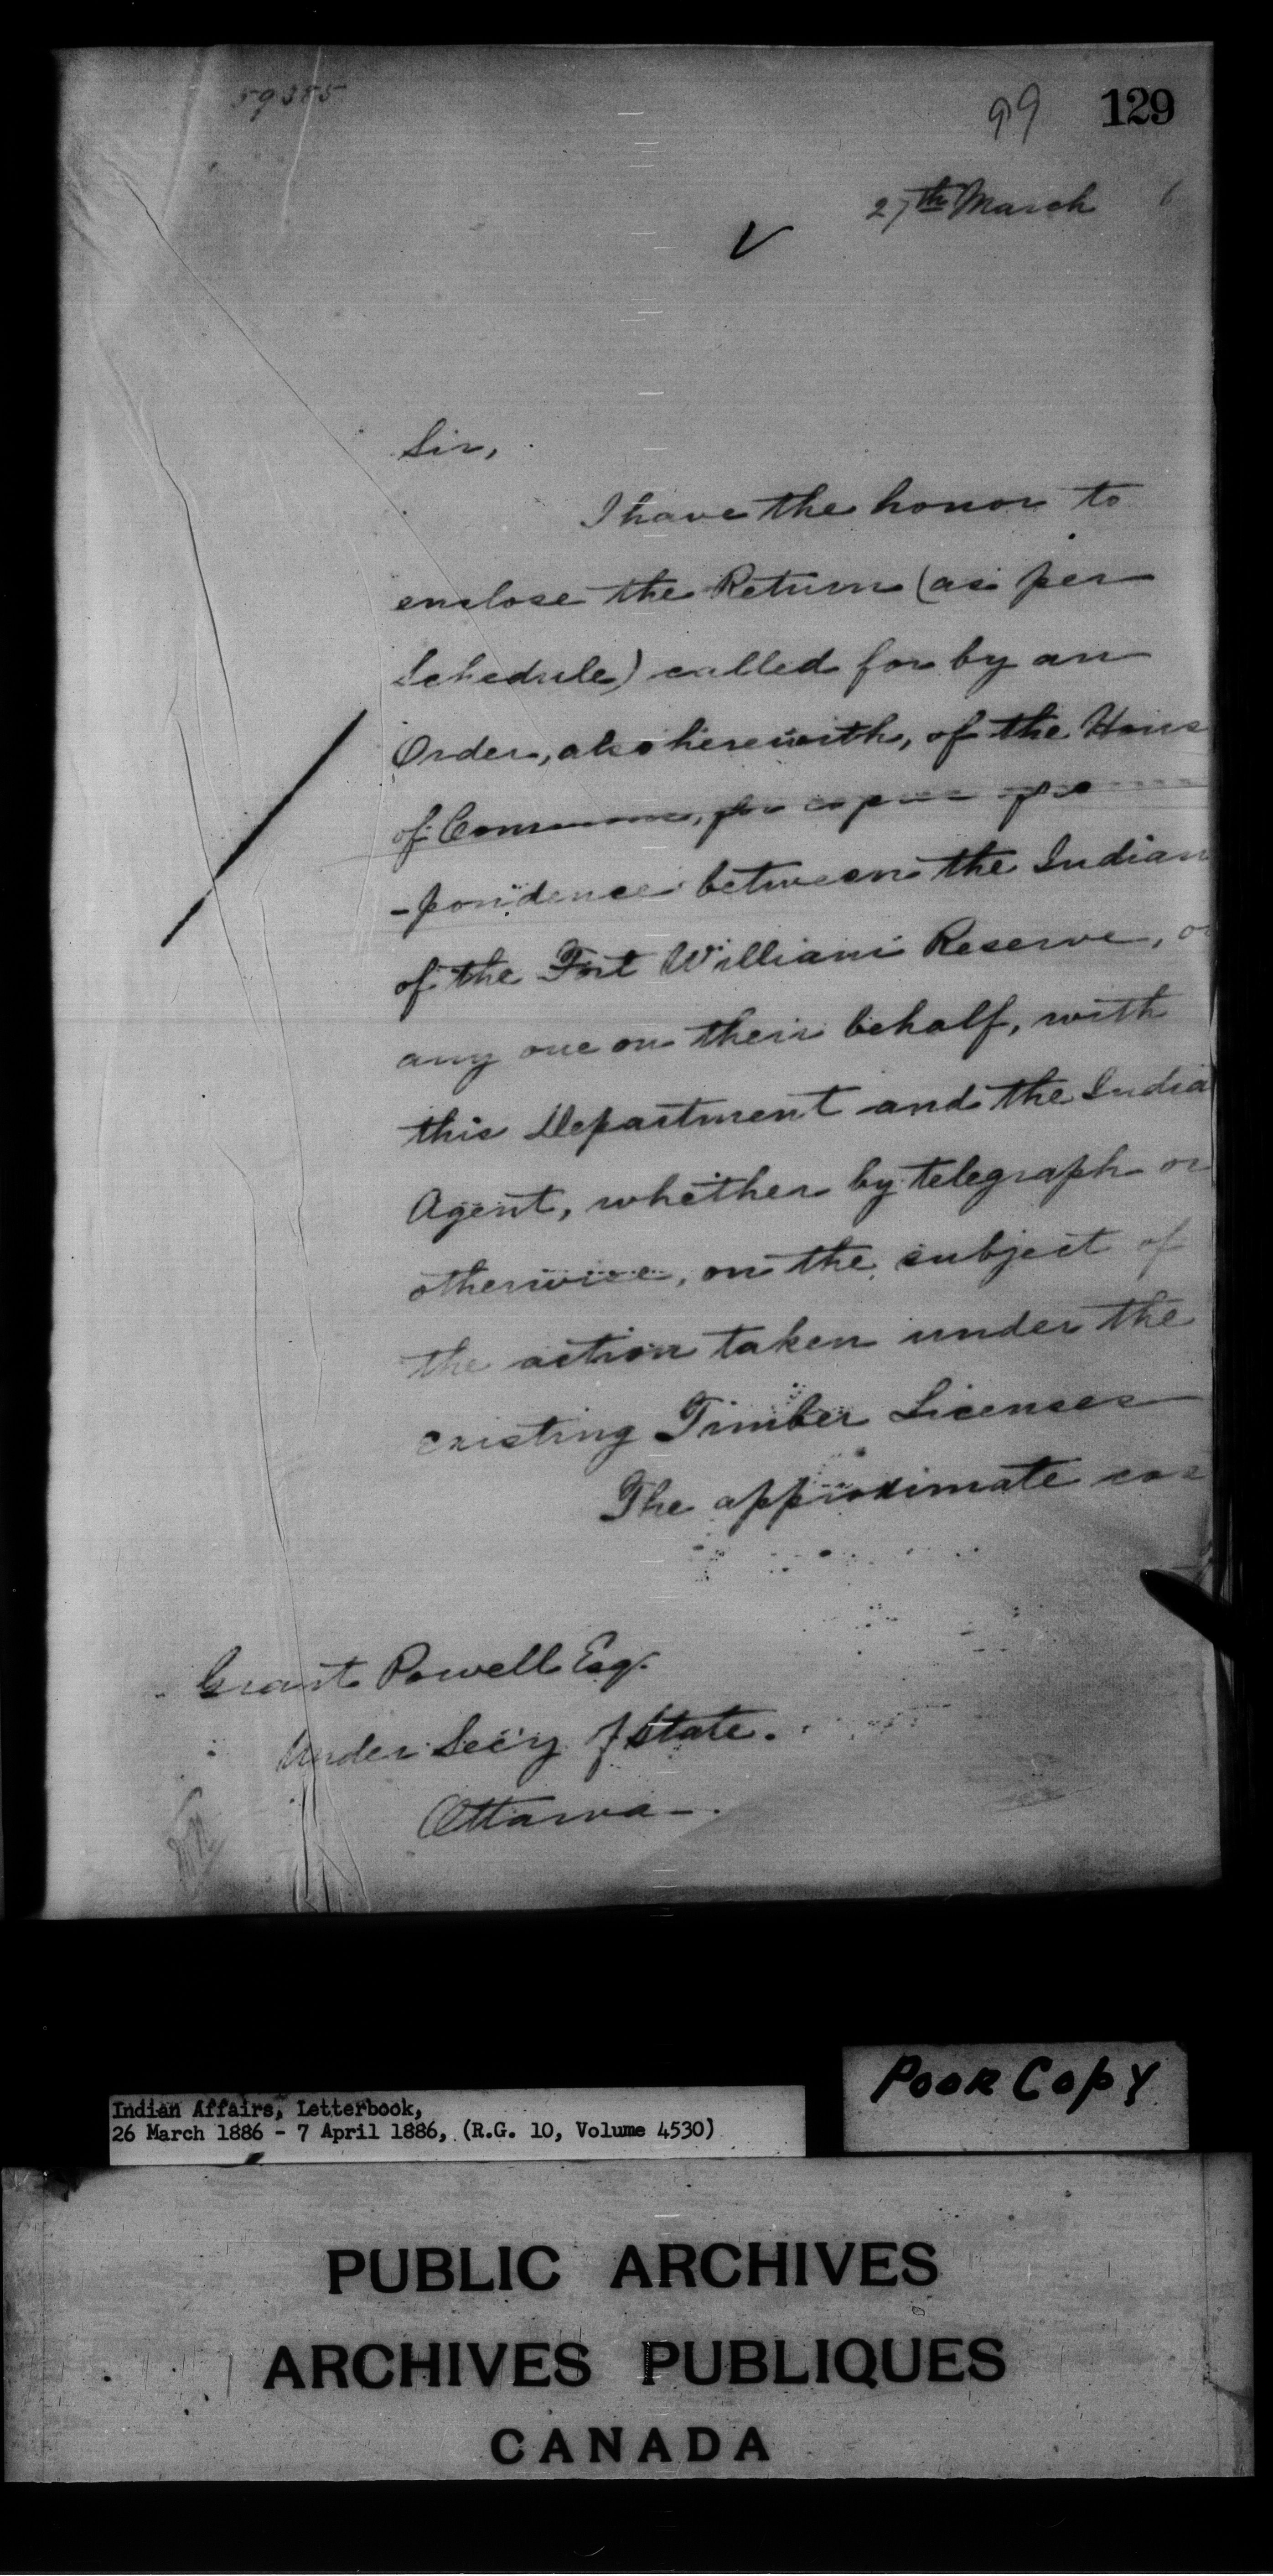 59385
99 129
27th March 6
Sir,
I have the honor to
enclose the Return (as per
Schedule) called for by an
Order, also herewith, of the Hous
of Commons, for copies of
-pondence between the Indian
of the Fort William Reserve, or
any one on their behalf, with
this Department and the India
Agent, whether by telegraph or
otherwise, on the subject of
the action taken under the
existing Timber Licenses
The approximate cos
Grant Powell Esq.
Under Sec'y of State.
Ottawa.
Poor Copy
Indian Affairs, Letterbook,
26 March 1886 - 7 April 1886, (R.G. 10, Volume 4530)
PUBLIC ARCHIVES
ARCHIVES PUBLIQUES
CANADA